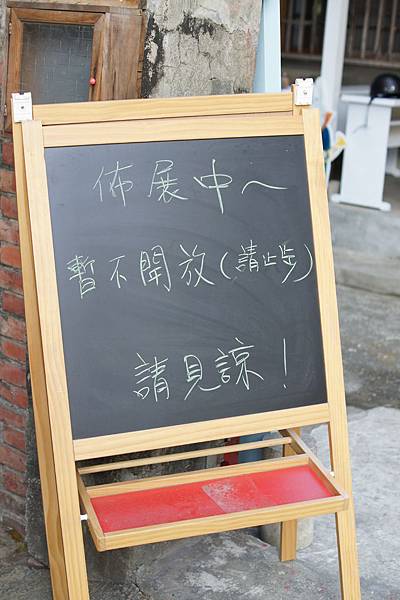 佈展中～
暫不開放(請止步)
請見諒！